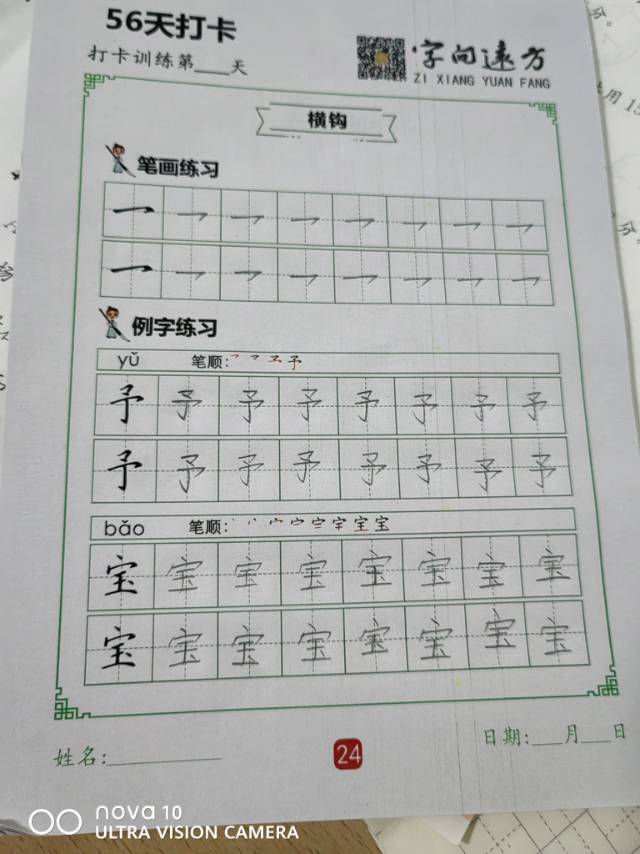 56天打卡
打卡训练第___天
字向远方
ZI XIANG YUAN FANG
横钩
笔画练习
例字练习
yǔ 笔顺:
予 予 予 予 予 予 予 予
予 予 予 予 予 予 予 予
bǎo 笔顺:
宝 宝 宝 宝 宝 宝 宝 宝
宝 宝 宝 宝 宝 宝 宝 宝
姓名:
24
日期:___月___日
nova 10
ULTRA VISION CAMERA